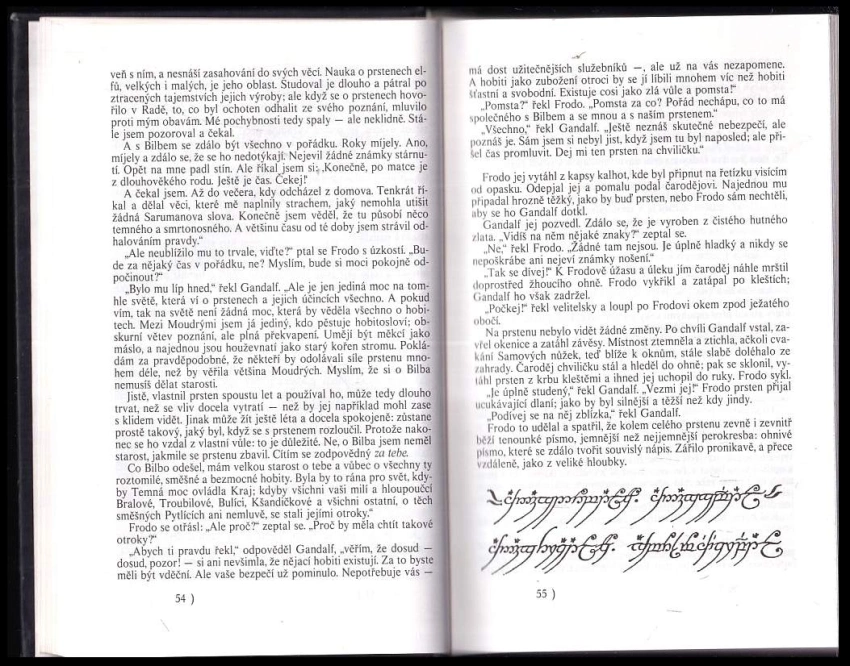 veň s ním, a nesnáší zasahování do svých věcí. Nauka o prstenech el-
fů, velkých i malých, je jeho oblast. Studoval je dlouho a pátral po
ztracených tajemstvích jejich výroby; ale když se o prstenech hovo-
řilo v Radě, to, co byl ochoten odhalit ze svého poznání, mluvilo
proti mým obavám. Mé pochybnosti tedy spaly — ale neklidně. Stá-
le jsem pozoroval a čekal.
A s Bilbem se zdálo být všechno v pořádku. Roky míjely. Ano,
míjely a zdálo se, že se ho nedotýkají. Nejevil žádné známky stárnu-
tí. Opět na mne padl stín. Ale říkal jsem si: ‚Konečně, po matce je
z dlouhověkého rodu. Ještě je čas. Čekej!‘
A čekal jsem. Až do večera, kdy odcházel z domova. Tenkrát ří-
kal a dělal věci, které mě naplnily strachem, jaký nemohla utišit
žádná Sarumanova slova. Konečně jsem věděl, že tu působí něco
temného a smrtonosného. A většinu času od té doby jsem strávil od-
halováním pravdy.“
„Ale neublížilo mu to trvale, viďte?“ ptal se Frodo s úzkostí. „Bu-
de za nějaký čas v pořádku, ne? Myslím, bude si moci pokojně od-
počinout?“
„Bylo mu líp hned,“ řekl Gandalf. „Ale je jen jediná moc na tom-
hle světě, která ví o prstenech a jejich účincích všechno. A pokud
vím, tak na světě není žádná moc, která by věděla všechno o hobi-
tech. Mezi Moudrými jsem já jediný, kdo pěstuje hobitosloví; ob-
skurní větev poznání, ale plná překvapení. Umějí být měkcí jako
máslo, a najednou jsou houževnatí jako starý kořen stromu. Poklá-
dám za pravděpodobné, že někteří by odolávali síle prstenu mno-
hem déle, než by věřila většina Moudrých. Myslím, že si o Bilba
nemusíš dělat starosti.
Jistě, vlastnil prsten spoustu let a používal ho, může tedy dlouho
trvat, než se vliv docela vytratí — než by jej například mohl zase
s klidem vidět. Jinak může žít ještě léta a docela spokojeně: zůstane
prostě takový, jaký byl, když se s prstenem rozloučil. Protože nako-
nec se ho vzdal z vlastní vůle: to je důležité. Ne, o Bilba jsem neměl
starost, jakmile se prstenu zbavil. Cítím se zodpovědný za tebe.
Co Bilbo odešel, mám velkou starost o tebe a vůbec o všechny ty
roztomilé, směšné a bezmocné hobity. Byla by to rána pro svět, kdy-
by Temná moc ovládla Kraj; kdyby všichni vaši milí a hloupoučcí
Bralové, Troubilové, Bulíci, Kšandičkové a všichni ostatní, o těch
směšných Pytlících ani nemluvě, se stali jejími otroky.“
Frodo se otřásl: „Ale proč?“ zeptal se. „Proč by měla chtít takové
otroky?“
„Abych ti pravdu řekl,“ odpověděl Gandalf, „věřím, že dosud —
dosud, pozor! — si ani nevšimla, že nějací hobiti existují. Za to byste
měli být vděční. Ale vaše bezpečí už pominulo. Nepotřebuje vás —
54 )
má dost užitečnějších služebníků —, ale už na vás nezapomene.
A hobiti jako zubožení otroci by se jí líbili mnohem víc než hobiti
šťastní a svobodní. Existuje cosi jako zlá vůle a pomsta!“
„Pomsta?“ řekl Frodo. „Pomsta za co? Pořád nechápu, co to má
společného s Bilbem a se mnou a s naším prstenem.“
„Všechno,“ řekl Gandalf. „Ještě neznáš skutečné nebezpečí, ale
poznáš je. Sám jsem si nebyl jist, když jsem tu byl naposled; ale při-
šel čas promluvit. Dej mi ten prsten na chviličku.“
Frodo jej vytáhl z kapsy kalhot, kde byl připnut na řetízku visícím
od opasku. Odepjal jej a pomalu podal čarodějovi. Najednou mu
připadal hrozně těžký, jako by buď prsten, nebo Frodo sám nechtěli,
aby se ho Gandalf dotkl.
Gandalf jej pozvedl. Zdálo se, že je vyroben z čistého hutného
zlata. „Vidíš na něm nějaké znaky?“ zeptal se.
„Ne,“ řekl Frodo. „Žádné tam nejsou. Je úplně hladký a nikdy se
nepoškrábe ani nejeví známky nošení.“
„Tak se dívej!“ K Frodově úžasu a úleku jím čaroděj náhle mrštil
doprostřed žhoucího ohně. Frodo vykřikl a zatápal po kleštích;
Gandalf ho však zadržel.
„Počkej!“ řekl velitelsky a loupl po Frodovi okem zpod ježatého
obočí.
Na prstenu nebylo vidět žádné změny. Po chvíli Gandalf vstal, za-
vřel okenice a zatáhl závěsy. Místnost ztemněla a ztichla, ačkoli cva-
kání Samových nůžek, teď blíže k oknům, stále slabě doléhalo ze
zahrady. Čaroděj chviličku stál a hleděl do ohně; pak se sklonil, vy-
táhl prsten z krbu kleštěmi a ihned jej uchopil do ruky. Frodo sykl.
„Je úplně studený,“ řekl Gandalf. „Vezmi jej!“ Frodo prsten přijal
ucukávající dlaní; jako by byl silnější a těžší než kdy jindy.
„Podívej se na něj zblízka,“ řekl Gandalf.
Frodo to udělal a spatřil, že kolem celého prstenu zevně i zevnitř
běží tenounké písmo, jemnější než nejjemnější perokresba: ohnivé
písmo, které se zdálo tvořit souvislý nápis. Zářilo pronikavě, a přece
vzdáleně, jako z veliké hloubky.
55 )